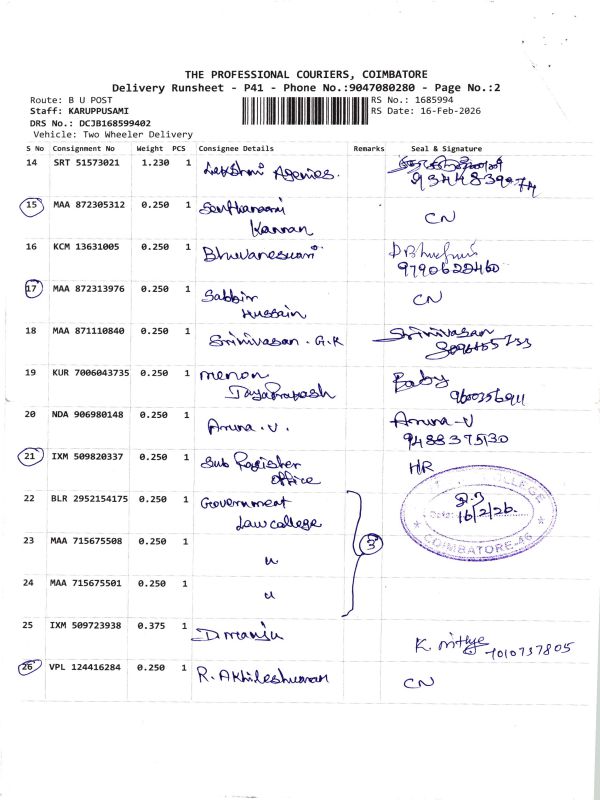 THE PROFESSIONAL COURIERS, COIMBATORE
Delivery Runsheet - P41 - Phone No.:9047080280 - Page No.:2
Route: B U POST
RS No.: 1685994
Staff: KARUPPUSAMI
RS Date: 16-Feb-2026
DRS No.: DCJB168599402
Vehicle: Two Wheeler Delivery
S No Consignment No Weight PCS Consignee Details Remarks Seal & Signature
14 SRT 51573021 1.230 1 Lakshmi Agencies.
15 MAA 872305312 0.250 1 Senthamarai
Kannan CN
16 KCM 13631005 0.250 1 Bhuvaneswari
9790622460
17 MAA 872313976 0.250 1 Sabbir
Hussain CN
18 MAA 871110840 0.250 1 Srinivasan . G.K Srinivasan
19 KUR 7006043735 0.250 1 menon Baby
Jayaprakash
20 NDA 906980148 0.250 1 Aruna . V. Aruna - V
9488375130
21 IXM 509820337 0.250 1 Sub Register HR
office
22 BLR 2952154175 0.250 1 Government
Law college
23 MAA 715675508 0.250 1 "
24 MAA 715675501 0.250 1 "
3
COLLEGE
Date: 16/2/26.
COIMBATORE-46
25 IXM 509723938 0.375 1 D manju
K. nithya 7010737805
26 VPL 124416284 0.250 1 R. Akhileshwaran CN